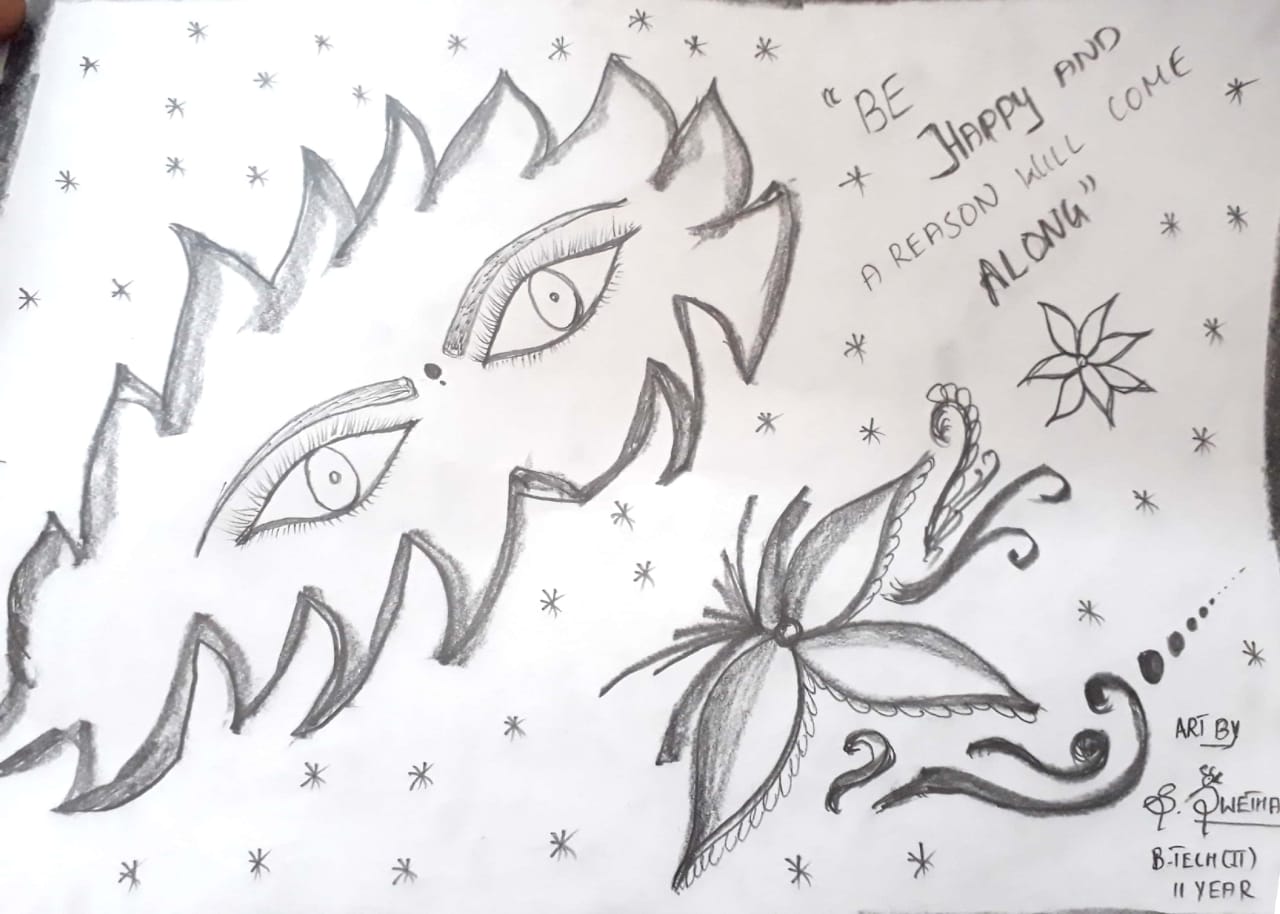 "BE
HAPPY AND
A REASON WILL COME
ALONG"
ART BY
S. SWETHA
B-TECH(IT)
II YEAR